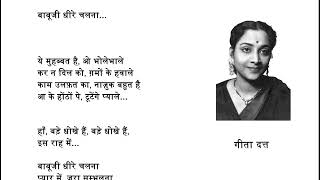 बाबूजी धीरे चलना...
ये मुहब्बत है, ओ भोलेभाले
कर न दिल को, ग़मों के हवाले
काम उलफ़त का, नाज़ुक बहुत है
आ के होंठों पे, टूटेंगे प्याले...
हाँ, बड़े धोखे हैं, बड़े धोखे हैं,
इस राह में...
बाबूजी धीरे चलना
प्यार में, ज़रा सम्भलना
गीता दत्त